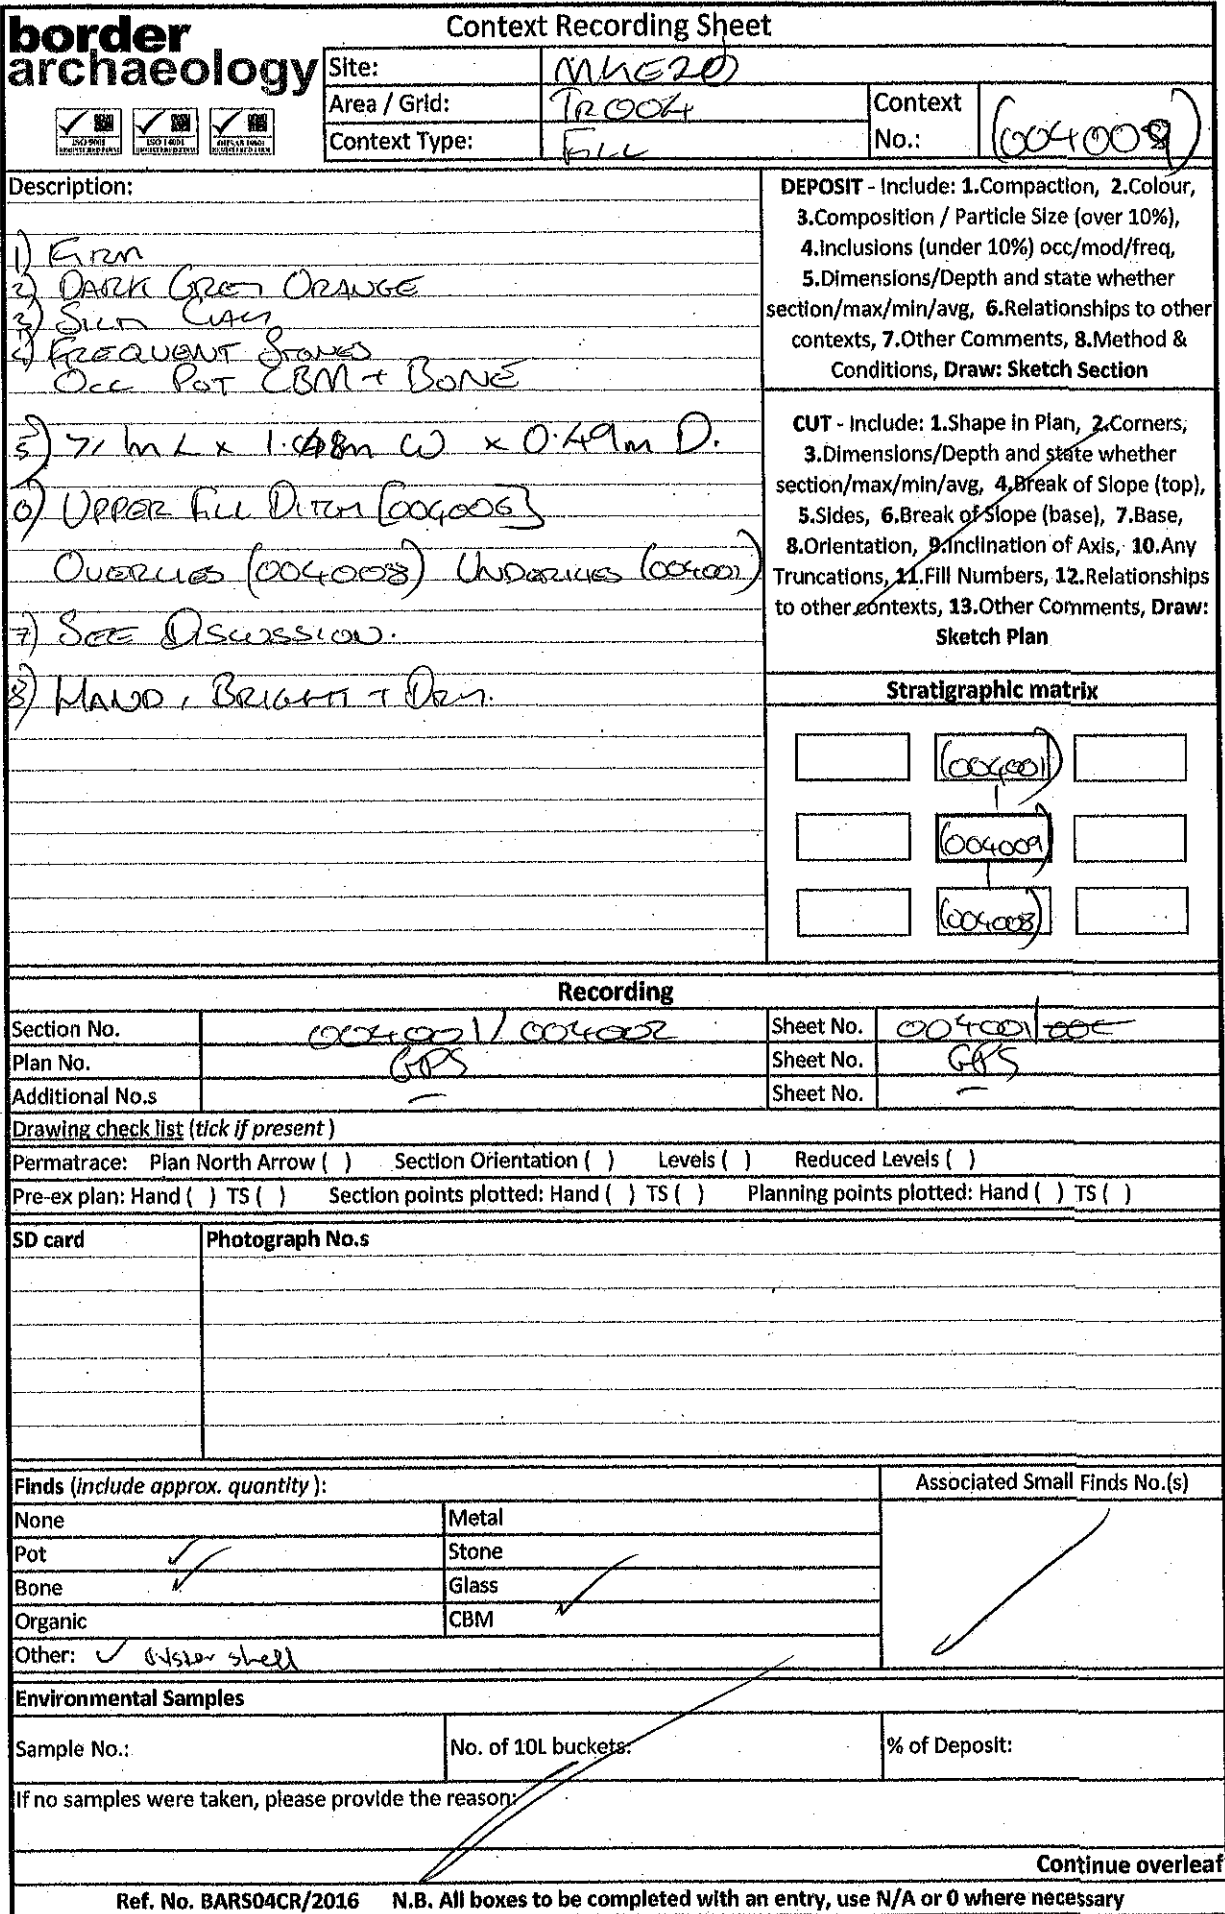 border
archaeology
Context Recording Sheet
Site: MKE20
Area / Grid: TR004
Context Type: Fill
Context No.: (004009)
ISO 9001
ISO 14001
OHSAS 18001
Description:
1) Firm
2) Dark Grey Orange
3) Silty Clay
4) Frequent Stones
Occ Pot CBM + Bone
5) >1m L x 1.48m W x 0.49m D.
6) Upper Fill Ditch [004006]
Overlies (004008) Underlies (004001)
7) See Discussion.
8) Hand, Bright + Dry.
DEPOSIT - Include: 1.Compaction, 2.Colour,
3.Composition / Particle Size (over 10%),
4.Inclusions (under 10%) occ/mod/freq,
5.Dimensions/Depth and state whether
section/max/min/avg, 6.Relationships to other
contexts, 7.Other Comments, 8.Method &
Conditions, Draw: Sketch Section
CUT - Include: 1.Shape in Plan, 2.Corners,
3.Dimensions/Depth and state whether
section/max/min/avg, 4.Break of Slope (top),
5.Sides, 6.Break of Slope (base), 7.Base,
8.Orientation, 9.Inclination of Axis, 10.Any
Truncations, 11.Fill Numbers, 12.Relationships
to other contexts, 13.Other Comments, Draw:
Sketch Plan
Stratigraphic matrix
(004001)
(004009)
(004008)
Recording
Section No. 004001/004002 Sheet No. 004001
Plan No. GPS Sheet No. GPS
Additional No.s – Sheet No. –
Drawing check list (tick if present)
Permatrace: Plan North Arrow ( ) Section Orientation ( ) Levels ( ) Reduced Levels ( )
Pre-ex plan: Hand ( ) TS ( ) Section points plotted: Hand ( ) TS ( ) Planning points plotted: Hand ( ) TS ( )
SD card Photograph No.s
Finds (include approx. quantity):
Associated Small Finds No.(s)
None Metal
Pot ✓ Stone
Bone ✓ Glass
Organic CBM ✓
Other: ✓ oyster shell
Environmental Samples
Sample No.: No. of 10L buckets: % of Deposit:
If no samples were taken, please provide the reason:
Continue overleaf
Ref. No. BARS04CR/2016 N.B. All boxes to be completed with an entry, use N/A or 0 where necessary